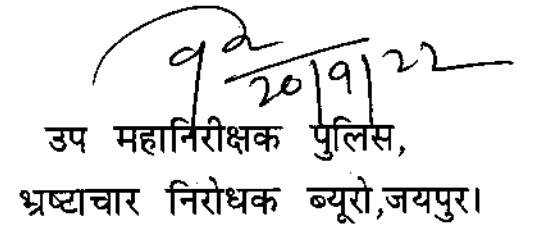 20/9/22
उप महानिरीक्षक पुलिस,
भ्रष्टाचार निरोधक ब्यूरो,जयपुर।